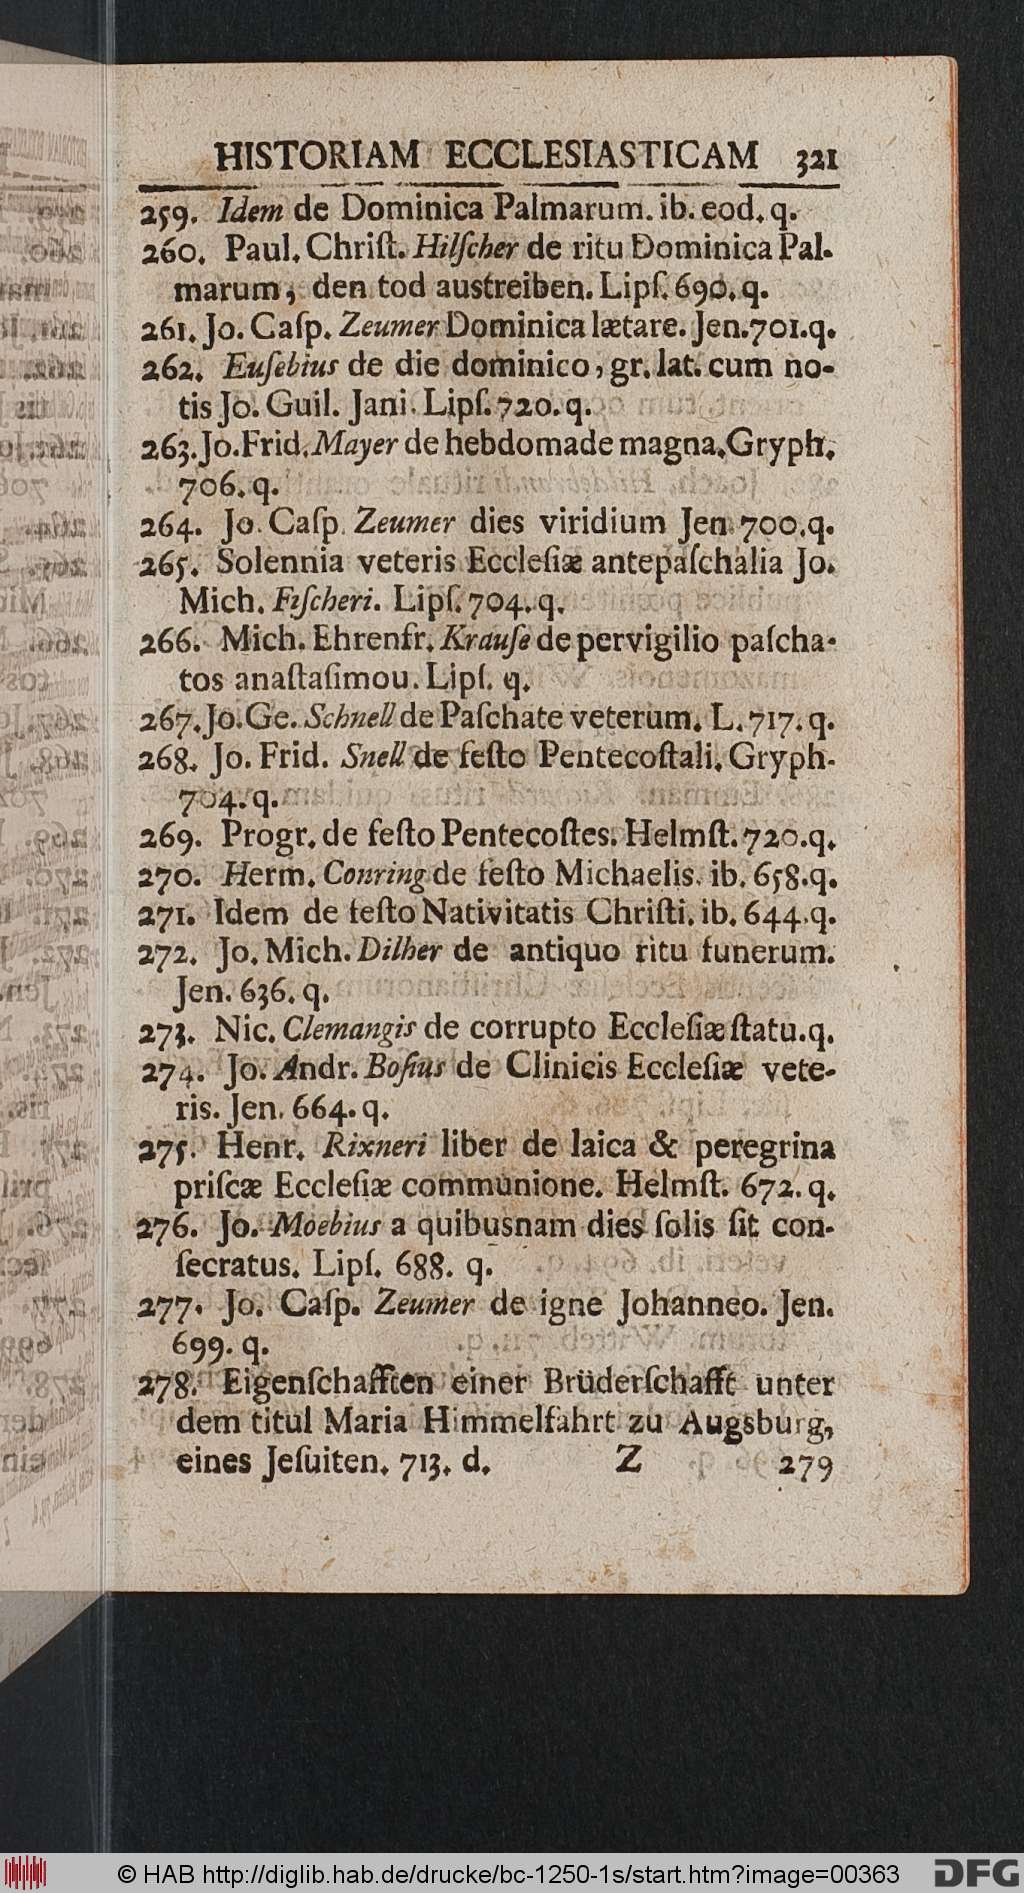 HISTORIAM ECCLESIASTICAM 321
259. Idem de Dominica Palmarum. ib. eod. q.
260. Paul. Chriſt. Hilſcher de ritu Dominica Pal-
marum, den tod austreiben. Lipſ. 690. q.
261. Jo. Caſp. Zeumer Dominica lætare. Jen. 701. q.
262. Euſebius de die dominico, gr. lat. cum no-
tis Jo. Guil. Jani. Lipſ. 720. q.
263. Jo. Frid. Mayer de hebdomade magna. Gryph.
706. q.
264. Jo. Caſp. Zeumer dies viridium Jen. 700. q.
265. Solennia veteris Eccleſiæ antepaſchalia Jo.
Mich. Fiſcheri. Lipſ. 704. q.
266. Mich. Ehrenfr. Krauſe de pervigilio paſcha-
tos anaſtaſimou. Lipſ. q.
267. Jo. Ge. Schnell de Paſchate veterum. L. 717. q.
268. Jo. Frid. Snell de feſto Pentecoſtali. Gryph.
704. q.
269. Progr. de feſto Pentecoſtes. Helmſt. 720. q.
270. Herm. Conring de feſto Michaelis. ib. 658. q.
271. Idem de feſto Nativitatis Chriſti. ib. 644. q.
272. Jo. Mich. Dilher de antiquo ritu funerum.
Jen. 636. q.
273. Nic. Clemangis de corrupto Eccleſiæ ſtatu. q.
274. Jo. Andr. Boſius de Clinicis Eccleſiæ vete-
ris. Jen. 664. q.
275. Henr. Rixneri liber de laica & peregrina
priſcæ Eccleſiæ communione. Helmſt. 672. q.
276. Jo. Moebius a quibusnam dies ſolis ſit con-
ſecratus. Lipſ. 688. q.
277. Jo. Caſp. Zeumer de igne Johanneo. Jen.
699. q.
278. Eigenſchafften einer Brüderſchafft unter
dem titul Maria Himmelfahrt zu Augsburg,
eines Jeſuiten. 713. d. Z 279
© HAB http://diglib.hab.de/drucke/bc-1250-1s/start.htm?image=00363 DFG